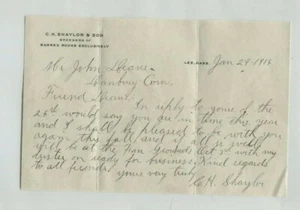 C. H. SHAYLOR & SON
BREEDERS OF
BARRED ROCKS EXCLUSIVELY
LEE, MASS. Jan 29 1916
Mr John
Danbury Conn.
Friend
In reply to yours of the
26th would say you are in time this year
and I shall be pleased to be with you
again this fall and if all is well
will be at the Fair Grounds Oct 2nd with my
on ready for business. Kind regards
to all friends yours very truly
C. H. Shaylor